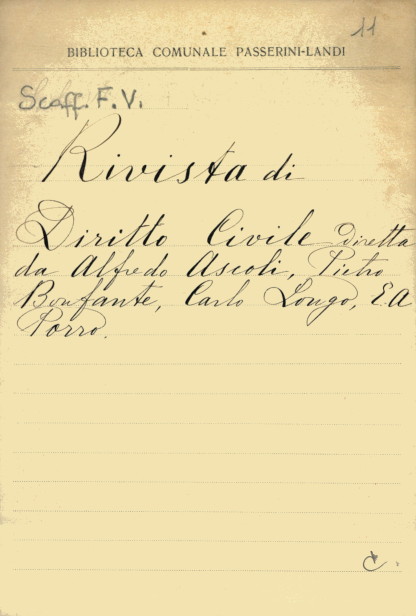 11
BIBLIOTECA COMUNALE PASSERINI-LANDI
Scaff. F.V.
Rivista di
Diritto Civile diretta
da Alfredo Ascoli, Pietro
Bonfante, Carlo Longo, E.A
Porro.
C.